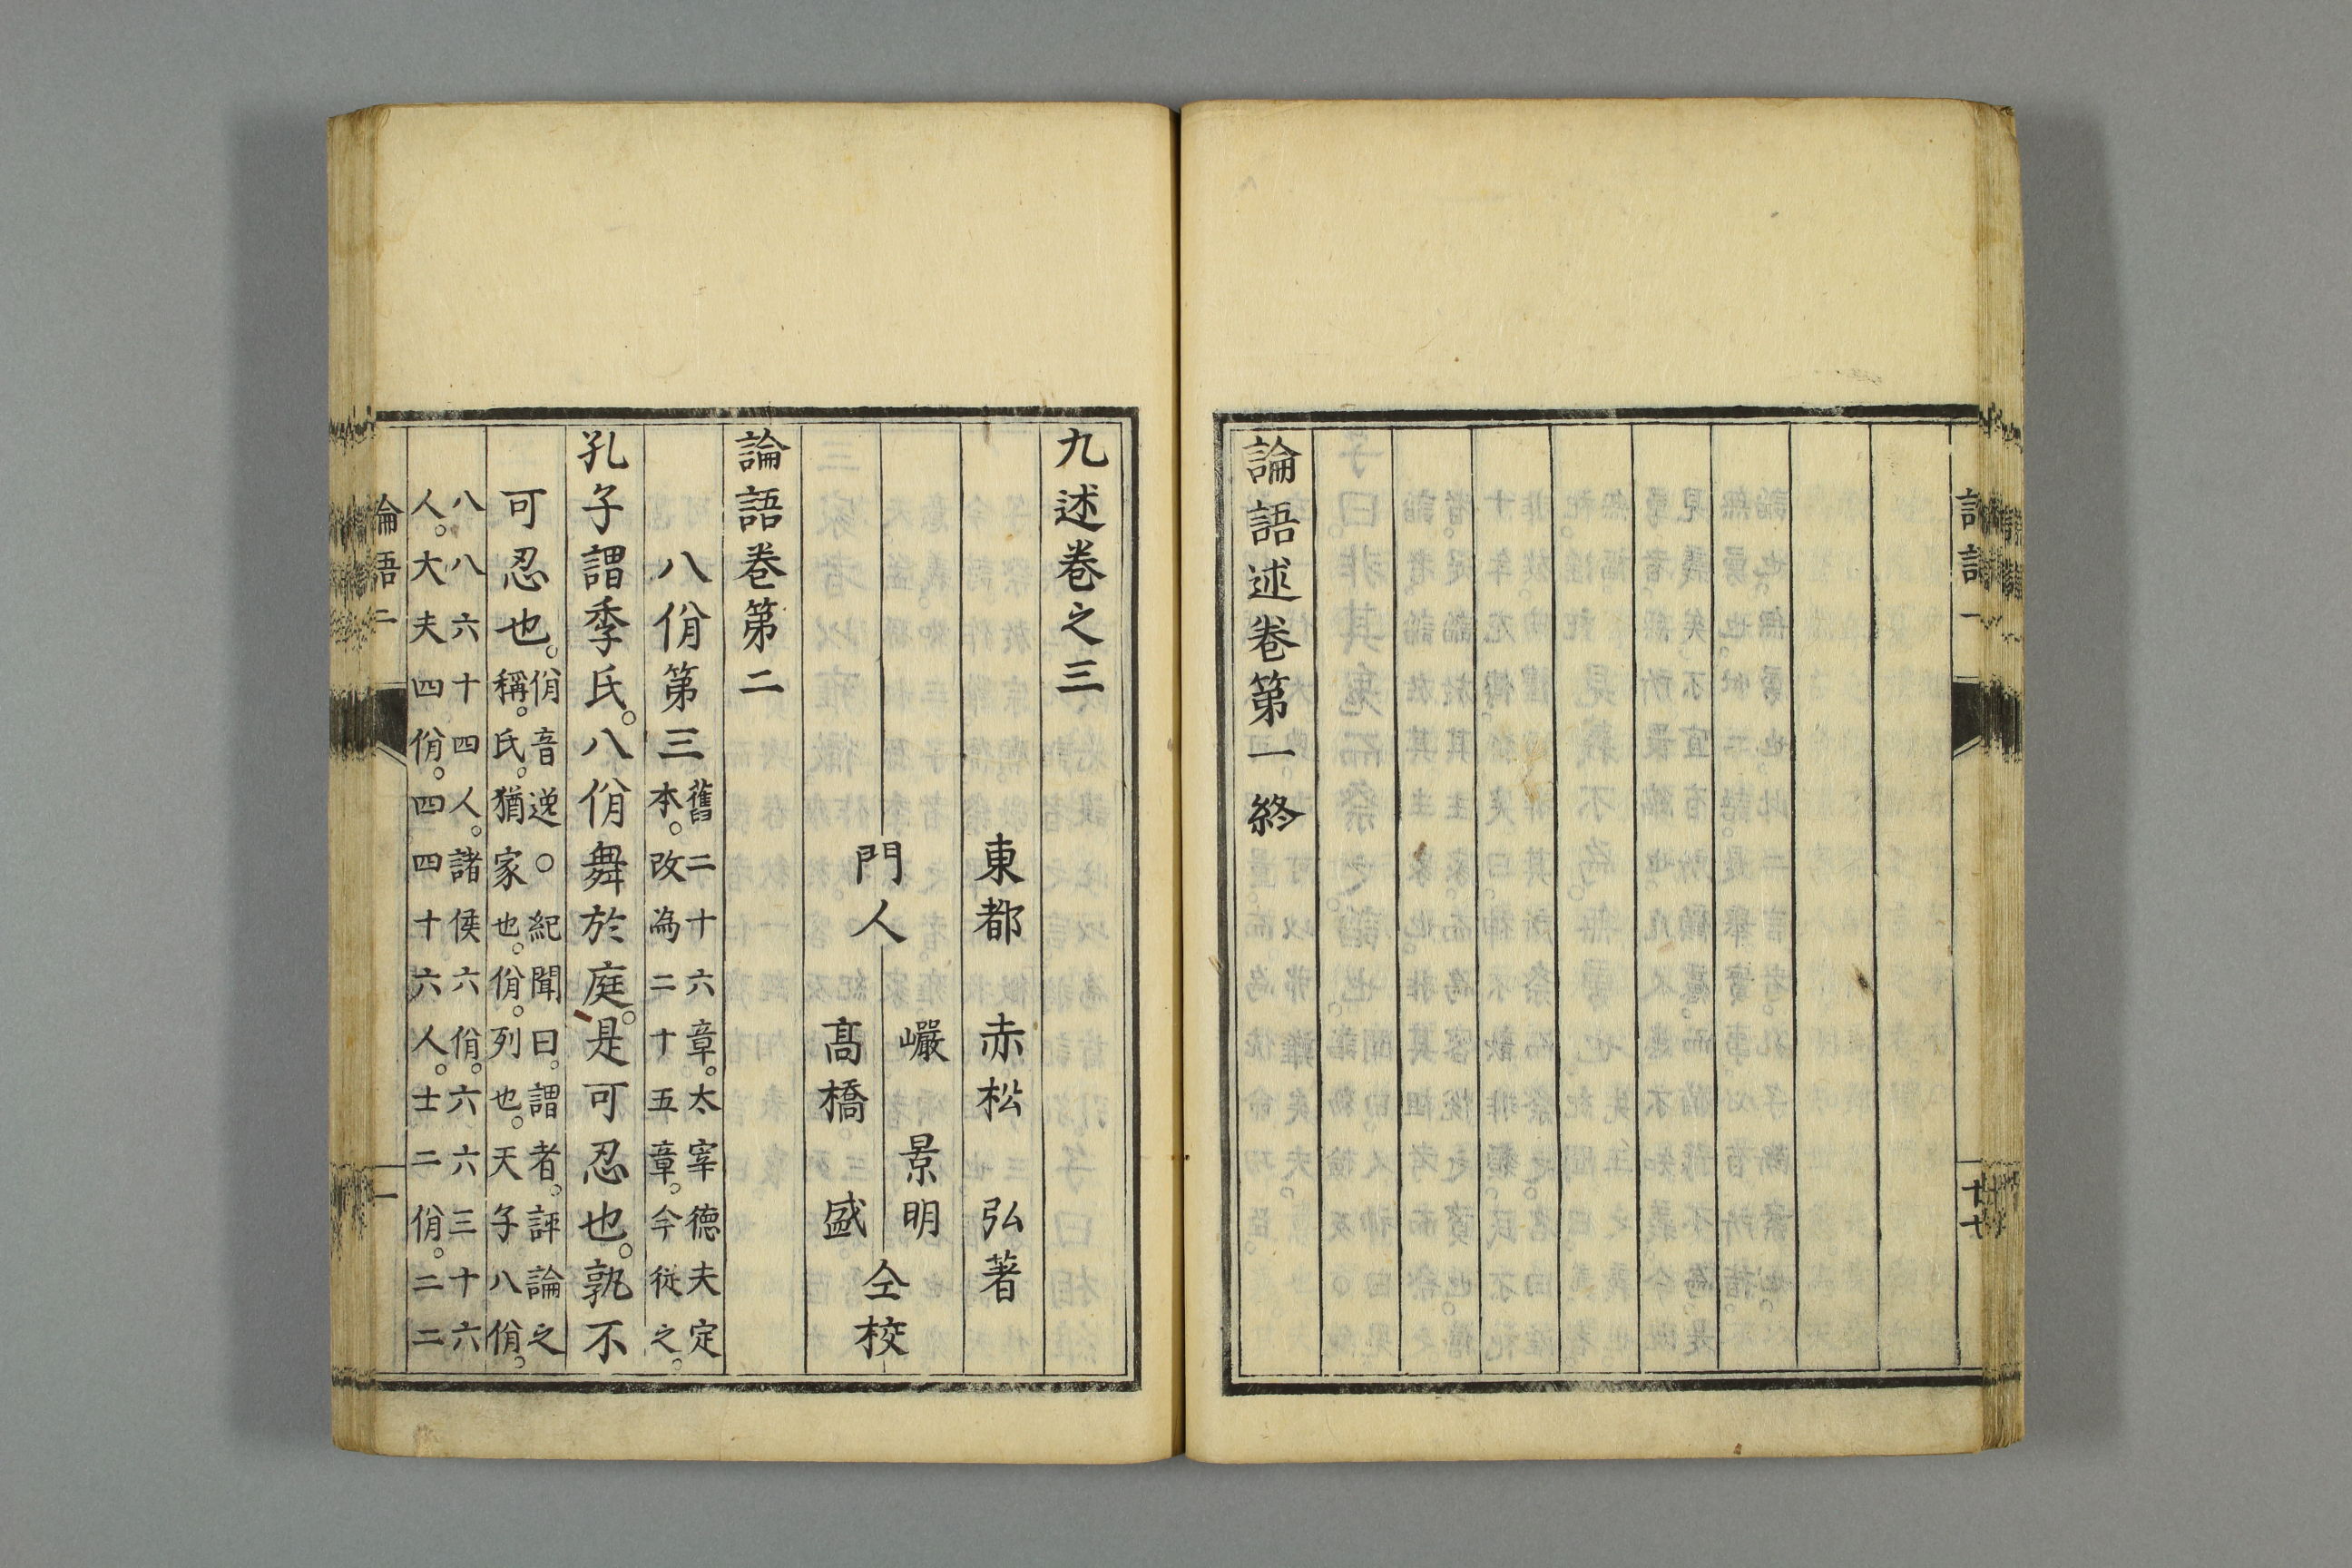 論語述卷第一終
九述卷之三
東都 赤松 弘著
門人 巖 景明
髙橋 盛 仝校
論語卷第二
八佾第三
舊二十六章。太宰德夫定
本。改為二十五章。今從之。
孔子謂季氏。八佾舞於庭。是可忍也。孰不
可忍也。
佾音逆○紀聞曰。謂者。評論之
稱。氏。猶家也。佾。列也。天子八佾。
八八六十四人。諸侯六佾。六六三十六
人。大夫四佾。四四十六人。士二佾。二二
論語二
一
十七